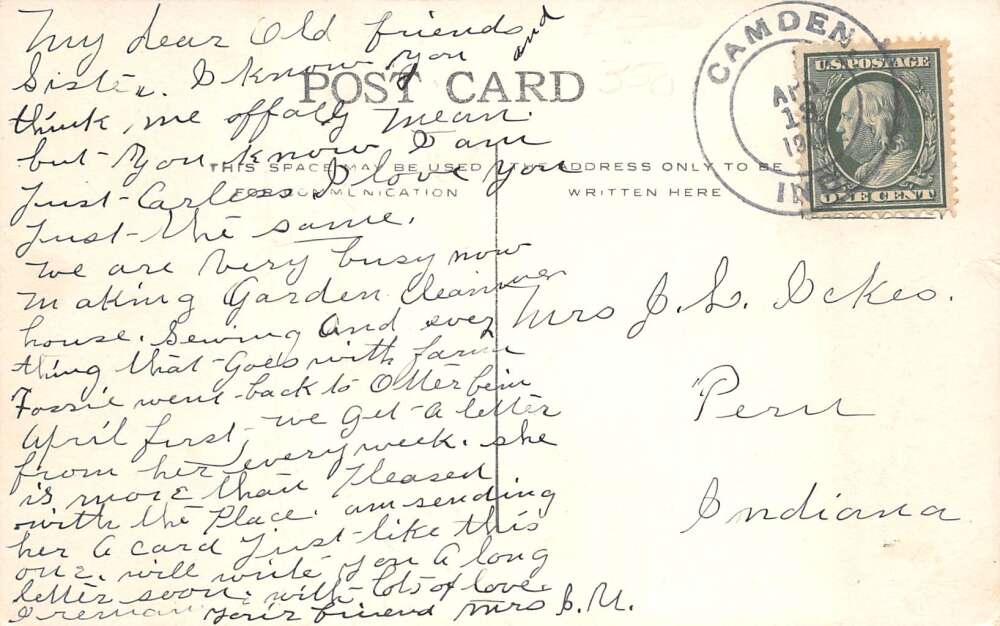 My dear Old friends and
Sister. I know you
think me offaly mean.
but you know I am
Just Carless I love you
Just the same.
we are very busy now
making Garden Cleaning
house. Sewing and evey
thing that Goes with farm
Fossie went back to Otterbein
April first, we get a letter
from her every week. she
is more than Pleased
with the Place. am sending
her a card Just like this
one. will write you a long
letter soon. with lots of love.
I remain your friend Mrs B.U.
POST CARD
THIS SPACE MAY BE USED
FOR COMMUNICATION
THE ADDRESS ONLY TO BE
WRITTEN HERE
CAMDEN
IND
U.S. POSTAGE
ONE CENT
Mrs J. L. Ickes.
Peru
Indiana